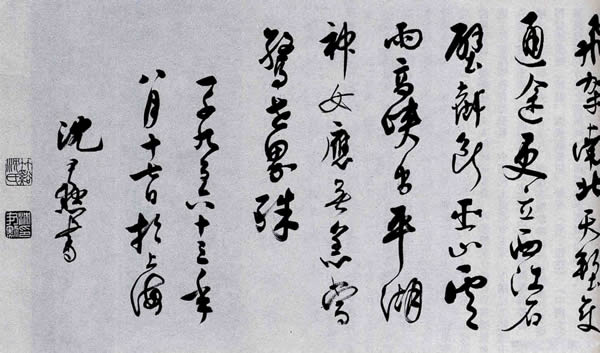 飛架南北天塹變
通途更立西江石
壁截斷巫山雲
雨高峽出平湖
神女應無恙當
驚世界殊
一千九百六十三年
八月十七日於上海
沈尹默書